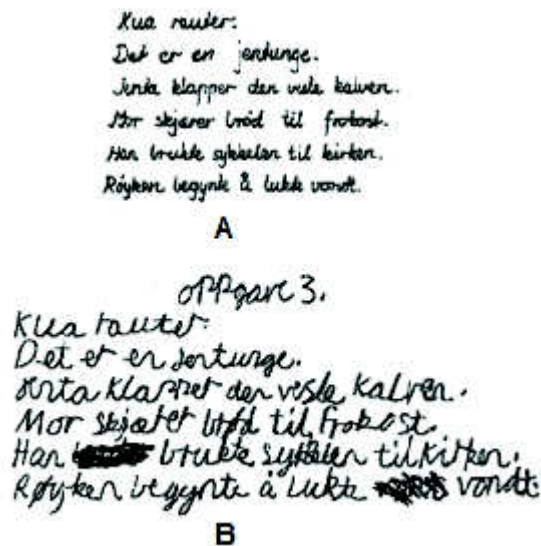 Kua rauter.
Det er en jentunge.
Jenta klapper den vesle kalven.
Mor skjærer brød til frokost.
Han brukte sykkelen til kirken.
Røyken begynte å lukte vondt.
A
oppgave 3.
Kua rauter.
Det er en jentunge.
Jenta klapper den vesle kalven.
Mor skjærer brød til frokost.
Han brukte sykkelen til kirken.
Røyken begynte å lukte vondt.
B